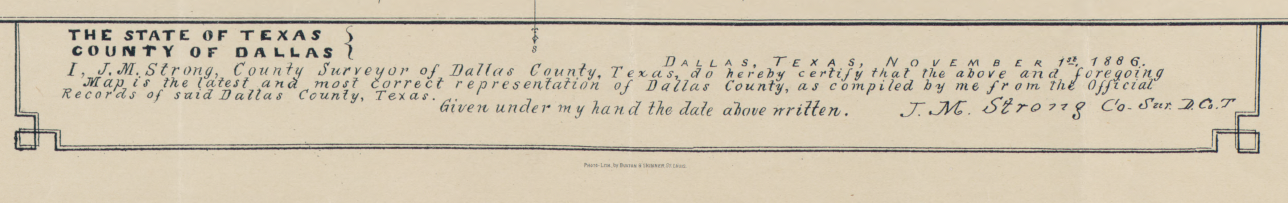 THE STATE OF TEXAS
COUNTY OF DALLAS
DALLAS, TEXAS, NOVEMBER 1st, 1886.
I, J.M. Strong, County Surveyor of Dallas County, Texas, do hereby certify that the above and foregoing
Map is the latest and most correct representation of Dallas County, as compiled by me from the Official
Records of said Dallas County, Texas.
Given under my hand the date above written. J. M. Strong Co. Sur. D. Co. T
Photo-Lith. by